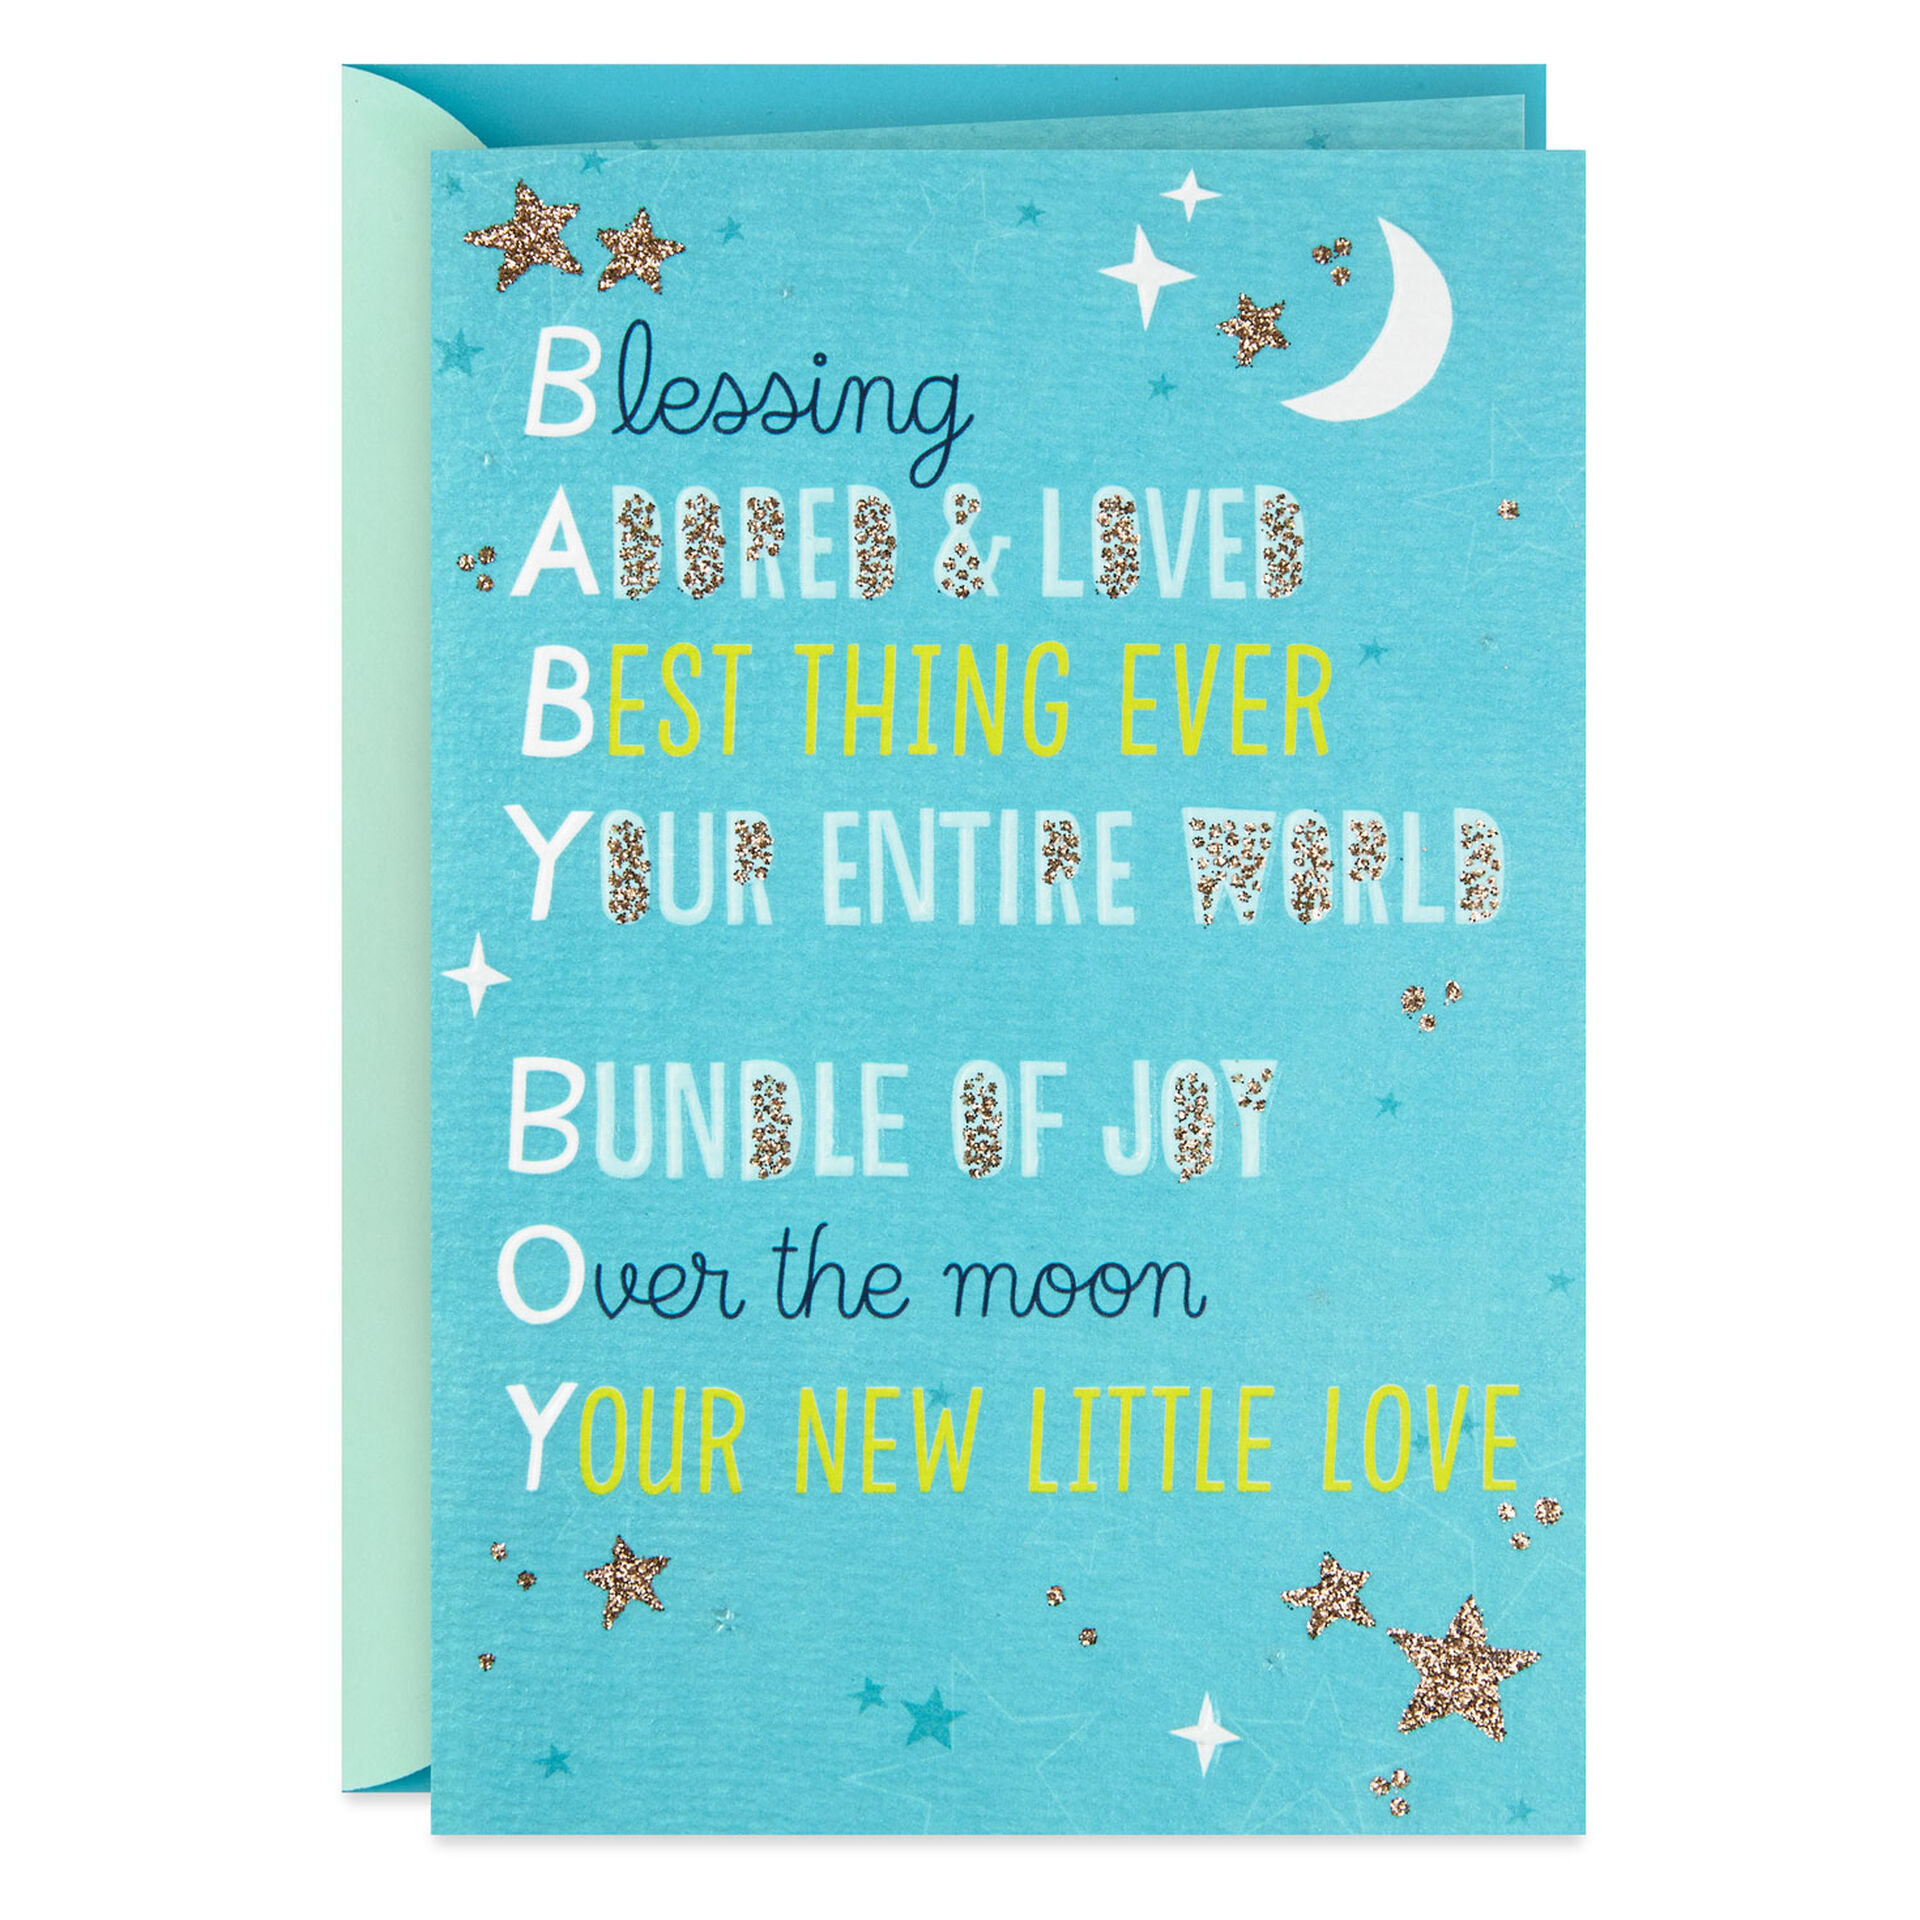 Blessing
ADORED & LOVED
BEST THING EVER
YOUR ENTIRE WORLD
BUNDLE OF JOY
Over the moon
YOUR NEW LITTLE LOVE